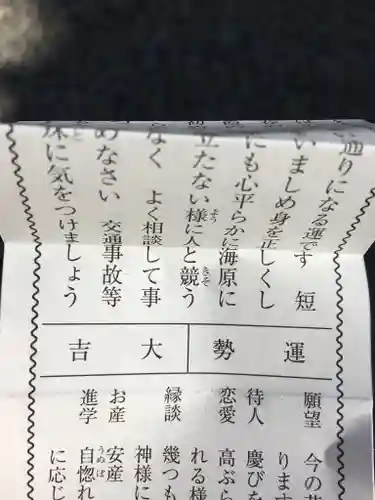 通りになる運です　短
いましめ身を正しくし
にも心平らかに海原に
立たない様に人と競う
なく　よく相談して事
めなさい　交通事故等
体に気をつけましょう
運勢　大吉
願望　今の
ります
待人　慶びを
恋愛　高ぶら
れる様
縁談　幾つも
神様に
お産　安産
進学　自惚れ
に応じ
よう
きそ
うぬぼ